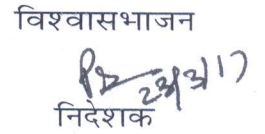 विश्वासभाजन
23/3/17
निदेशक